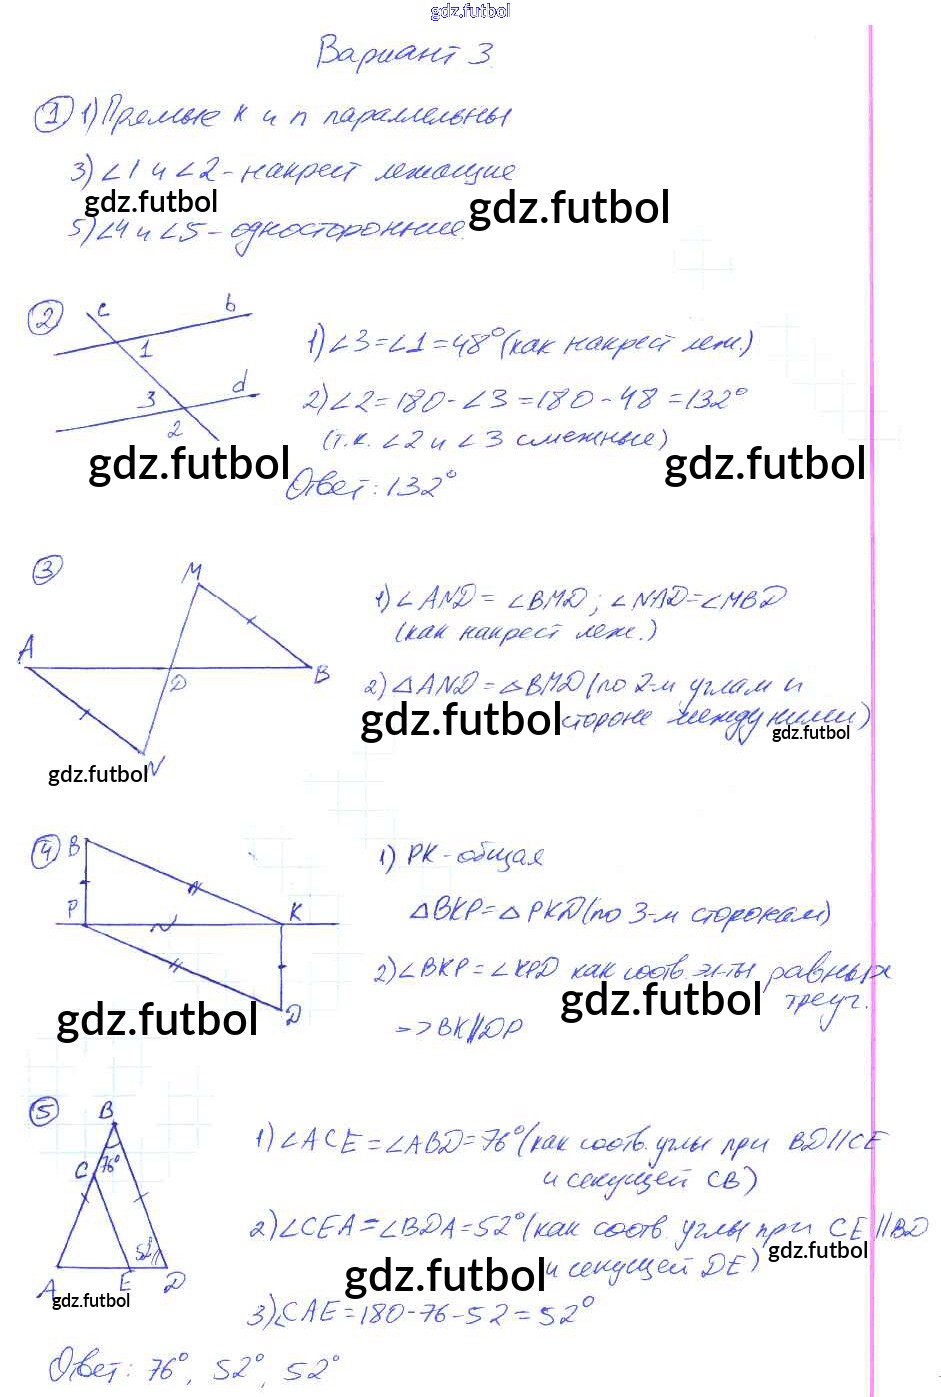 gdz.futbol
Вариант 3
1 1) Прямые к и n параллельны
3) ∠1 и ∠2 - накрест лежащие
gdz.futbol
gdz.futbol
5) ∠4 и ∠5 - односторонние.
2
c b
1
3 d
2
1) ∠3 = ∠1 = 48° (как накрест леж.)
2) ∠2 = 180 - ∠3 = 180 - 48 = 132°
(т.к. ∠2 и ∠3 смежные)
gdz.futbol
gdz.futbol
Ответ: 132°
3
M
A
D
B
N
1) ∠AND = ∠BMD; ∠NAD = ∠MBD
(как накрест леж.)
2) △AND = △BMD (по 2-м углам и
стороне между ними)
gdz.futbol
gdz.futbol
gdz.futbol
4
B
P
K
D
1) PK - общая
△BKP = △PKD (по 3-м сторонам)
2) ∠BKP = ∠KPD как соотв. эл-ты равных
треуг.
=> BK∥DP
gdz.futbol
gdz.futbol
5
B
C 76°
52°
A E D
1) ∠ACE = ∠ABD = 76° (как соотв. углы при BD∥CE
и секущей CB)
2) ∠CEA = ∠BDA = 52° (как соотв. углы при CE∥BD
и секущей DE)
gdz.futbol
gdz.futbol
gdz.futbol
3) ∠CAE = 180 - 76 - 52 = 52°
Ответ: 76°, 52°, 52°